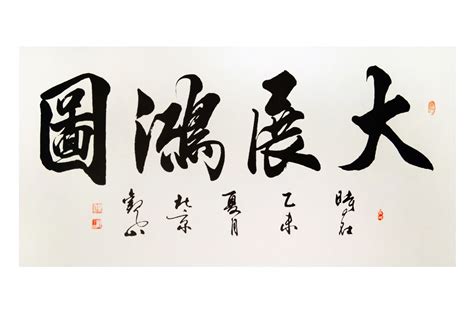 大展鴻圖
時在
乙未
夏月
北京